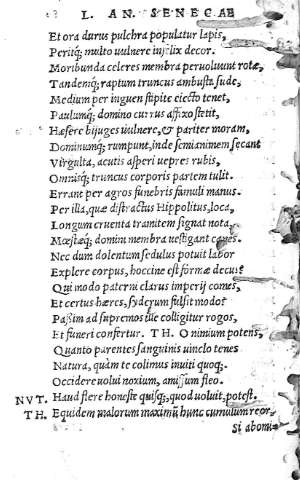 L. AN. SENECAE
Et ora durus pulchra populatur lapis,
Peritq; multo uulnere infelix decor.
Moribunda celeres membra peruoluunt rotæ,
Tandemq; raptum truncus ambusta sude,
Medium per inguen stipite eiecto tenet,
Paulumq; domino currus affixo stetit,
Hæsere biiuges uulnere, & pariter moram,
Dominumq; rumpunt, inde semianimem secant
Virgulta, acutis asperi uepres rubis,
Omnisq; truncus corporis partem tulit.
Errant per agros funebris famuli manus.
Per illa, quæ distractus Hippolitus, loca,
Longum cruenta tramitem signat nota,
Mœstæq; domini membra uestigant canes.
Nec dum dolentum sedulus potuit labor
Explere corpus, hoccine est formæ decus?
Qui modo paterni clarus imperij comes,
Et certus hæres, syderum fulsit modo?
Passim ad supremos tue colligitur rogos,
Et funeri confertur. TH. O nimium potens,
Quanto parentes sanguinis uinclo tenes
Natura, quàm te colimus inuiti quoq;.
Occidere uolui noxium, amissum fleo.
NVT. Haud flere honeste quisq; quod uoluit, potest.
TH. Equidem malorum maximũ hunc cumulum reor,
Si abomi-